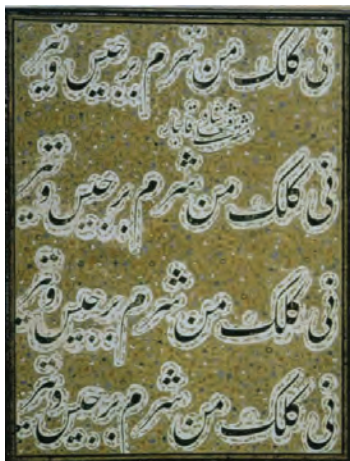 نی کلک من شرم برجیس و تیر
شاه قاجار
نی کلک من شرم برجیس و تیر
نی کلک من شرم برجیس و تیر
نی کلک من شرم برجیس و تیر